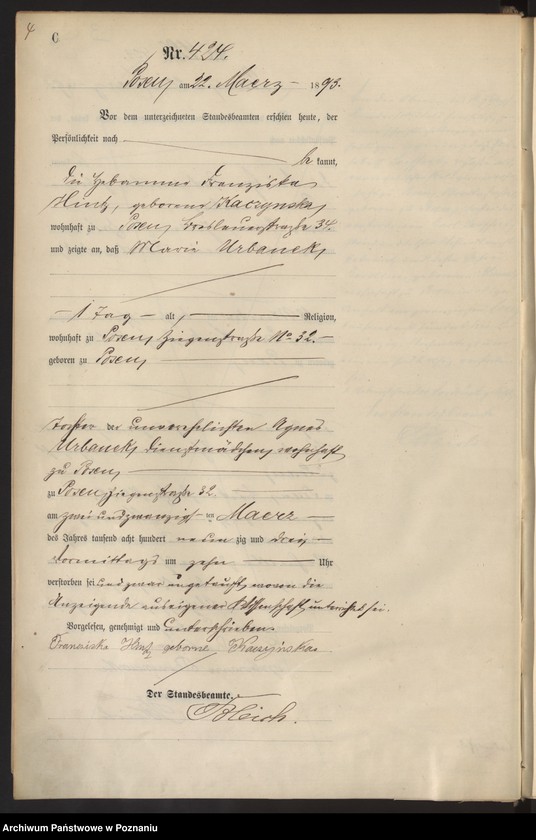 4
C
Nr. 424.
Posen am 22. Maerz 1893.
Vor dem unterzeichneten Standesbeamten erschien heute, der
Persönlichkeit nach
be kannt,
die Hebamme Franziska
Hintz, geborene Kaczynska,
wohnhaft zu Posen, Breslauerstraße 34.
und zeigte an, daß Marie Urbanek,
1 Tag alt, Religion,
wohnhaft zu Posen, Ziegenstraße No 32.
geboren zu Posen,
Tochter der unverehelichten Agnes
Urbanek, Dienstmädchen, wohnhaft
zu Posen,
zu Posen Ziegenstraße 32.
am zwei und zwanzigsten Maerz
des Jahres tausend acht hundert neun zig und drei
Vormittags um zehn Uhr
verstorben sei und zwar ungetauft, wovon die
Anzeigende aus eigener Wissenschaft unterrichtet sei.
Vorgelesen, genehmigt und unterschrieben.
Franziska Hintz geborne Kaczyńska
Der Standesbeamte.
Archiwum Państwowe w Poznaniu